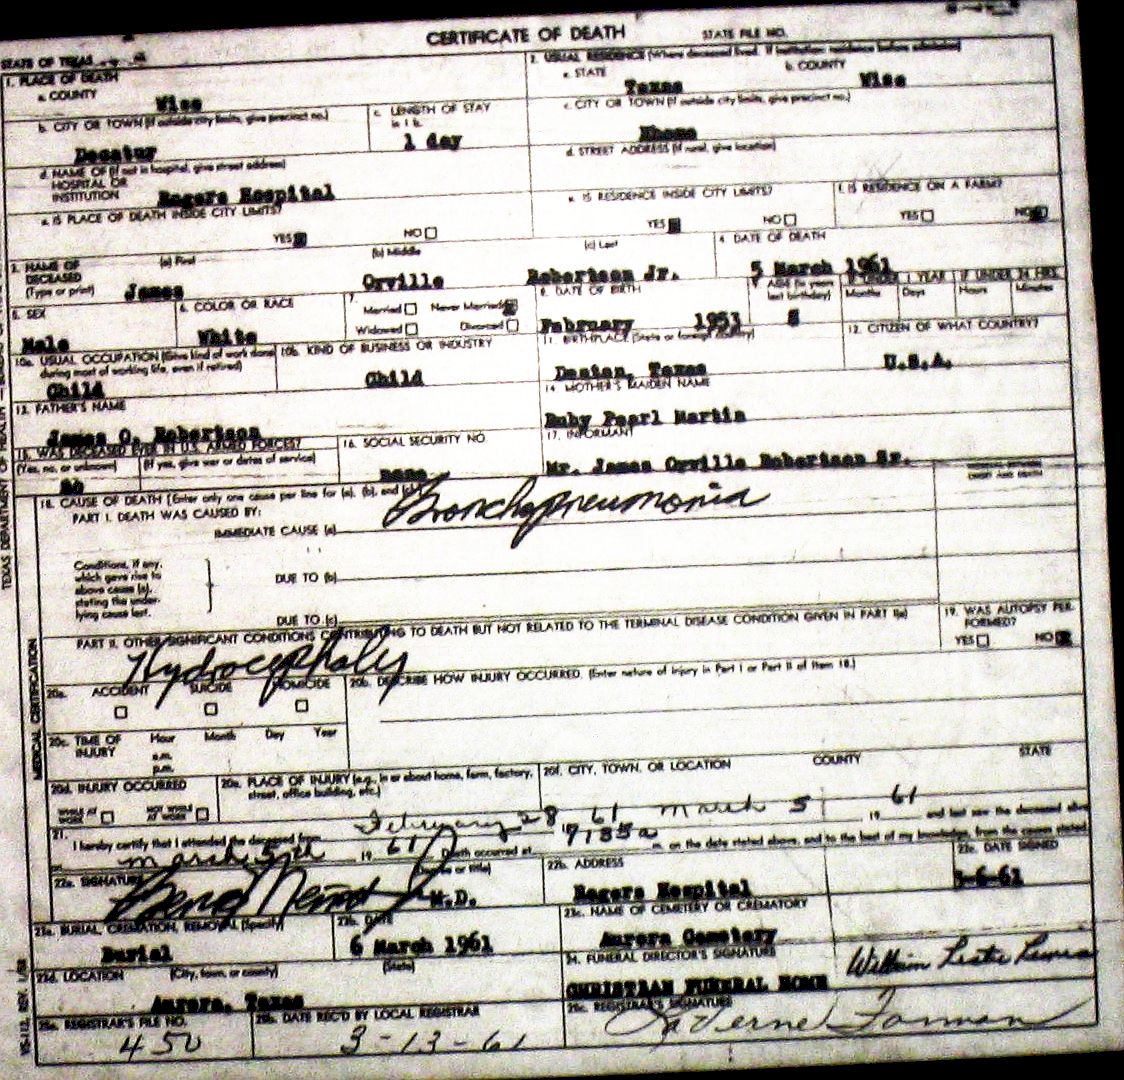 CERTIFICATE OF DEATH STATE FILE NO.
STATE OF TEXAS
1. PLACE OF DEATH
a. COUNTY
Wise
2. USUAL RESIDENCE (Where deceased lived. If institution: residence before admission)
a. STATE
Texas
b. COUNTY
Wise
b. CITY OR TOWN (If outside city limits, give precinct no.)
Decatur
c. LENGTH OF STAY
in 1 b.
1 day
c. CITY OR TOWN (If outside city limits, give precinct no.)
Rhome
d. NAME OF (If not in hospital, give street address)
HOSPITAL OR
INSTITUTION Rogers Hospital
d. STREET ADDRESS (If rural, give location)
e. IS PLACE OF DEATH INSIDE CITY LIMITS?
YES NO
e. IS RESIDENCE INSIDE CITY LIMITS?
YES NO
f. IS RESIDENCE ON A FARM?
YES NO
3. NAME OF
DECEASED
(Type or print)
(a) First
James
(b) Middle
Orville
(c) Last
Robertson Jr.
4. DATE OF DEATH
5 March 1961
5. SEX
Male
6. COLOR OR RACE
White
7.
Married Never Married
Widowed Divorced
8. DATE OF BIRTH
February 1953
9. AGE (In years
last birthday)
8
IF UNDER 1 YEAR
Months Days
IF UNDER 24 HRS.
Hours Minutes
10a. USUAL OCCUPATION (Give kind of work done
during most of working life, even if retired)
Child
10b. KIND OF BUSINESS OR INDUSTRY
Child
11. BIRTHPLACE (State or foreign country)
Denton, Texas
12. CITIZEN OF WHAT COUNTRY?
U.S.A.
13. FATHER'S NAME
James O. Robertson
14. MOTHER'S MAIDEN NAME
Ruby Pearl Martin
15. WAS DECEASED EVER IN U.S. ARMED FORCES?
(Yes, no, or unknown) (If yes, give war or dates of service)
No
16. SOCIAL SECURITY NO.
none
17. INFORMANT
Mr. James Orville Robertson Sr.
18. CAUSE OF DEATH (Enter only one cause per line for (a), (b), and (c))
PART I. DEATH WAS CAUSED BY:
IMMEDIATE CAUSE (a) Bronchopneumonia
Conditions, if any,
which gave rise to
above cause (a),
stating the under-
lying cause last.
DUE TO (b)
DUE TO (c)
PART II. OTHER SIGNIFICANT CONDITIONS CONTRIBUTING TO DEATH BUT NOT RELATED TO THE TERMINAL DISEASE CONDITION GIVEN IN PART I(a)
Hydrocephaly
19. WAS AUTOPSY PER-
FORMED?
YES NO
20a. ACCIDENT SUICIDE HOMICIDE
20b. DESCRIBE HOW INJURY OCCURRED. (Enter nature of injury in Part I or Part II of Item 18.)
20c. TIME OF
INJURY
Hour Month Day Year
a.m.
p.m.
20d. INJURY OCCURRED
WHILE AT
WORK
NOT WHILE
AT WORK
20e. PLACE OF INJURY (e.g., in or about home, farm, factory,
street, office building, etc.)
20f. CITY, TOWN, OR LOCATION COUNTY STATE
21. I hereby certify that I attended the deceased from February 28 61 March 5 19 61 and last saw the deceased alive
March 5th 19 61 Death occurred at 7:35a m. on the date stated above, and to the best of my knowledge, from the causes stated
22a. SIGNATURE (Degree or title)
M.D.
22b. ADDRESS
Rogers Hospital
22c. DATE SIGNED
3-6-61
23a. BURIAL, CREMATION, REMOVAL (Specify)
Burial
23b. DATE
6 March 1961
23c. NAME OF CEMETERY OR CREMATORY
Aurora Cemetery
23d. LOCATION (City, town, or county) (State)
Aurora, Texas
24. FUNERAL DIRECTOR'S SIGNATURE
CHRISTIAN FUNERAL HOME William Leslie Lewis
25a. REGISTRAR'S FILE NO.
450
25b. DATE REC'D BY LOCAL REGISTRAR
3-13-61
25c. REGISTRAR'S SIGNATURE
LaVerne Forman
MEDICAL CERTIFICATION